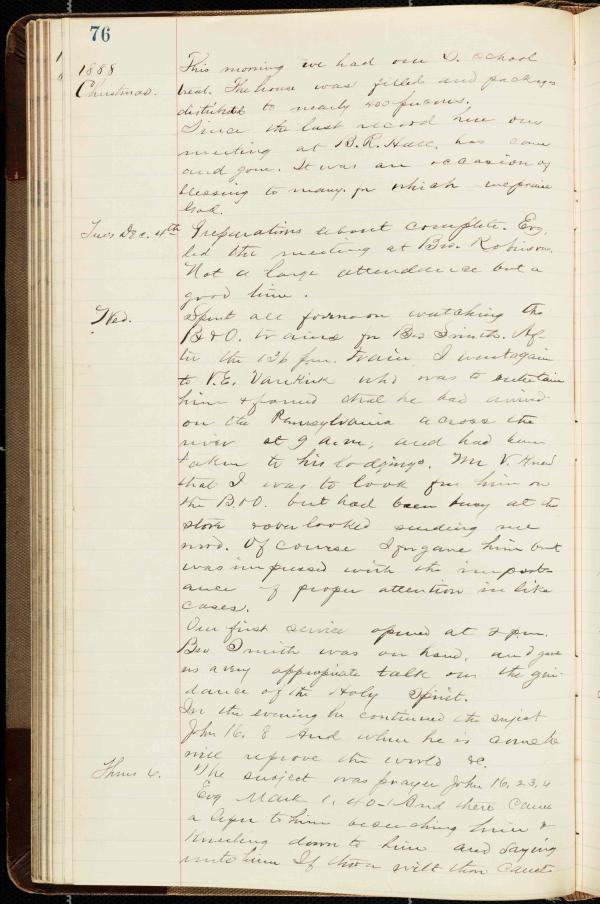 76
1888 This morning we had our S. School
Christmas. treat. The house was filled and packages
distributed to nearly 400 persons.
Since the last record here our
meeting at B. R. Hall, has come
and gone. It was an occasion of
blessing to many for which we praise
God.
Tues Dec. 4th Preparations about complete. Evg.
led the meeting at Bro. Robinsons.
Not a large attendance but a
good time.
Wed. Spent all forenoon watching the
B & O. trains for Bro Smith. Af-
ter the 1 26 p.m. train I went again
to V. E. VanKirk who was to entertain
him & found that he had arrived
on the Pennsylvania across the
river at 9 a.m., and had been
taken to his lodgings. Mr V. knew
that I was to look for him on
the B. & O. but had been busy at the
store & overlooked sending me
word. Of course I forgave him but
was impressed with the import-
ance of proper attention in like
cases.
Our first service opened at 2 p.m.
Bro Smith was on hand, and gave
us a very appropriate talk on the gui-
dance of the Holy Spirit.
In the evening he continued the subject
John 16. 8 And when he is come he
will reprove the world &c.
Thurs 6. The subject was prayer John 16, 23, 4
Evg Mark 1. 40-1 And there came
a leper to him beseeching him &
kneeling down to him and saying
unto him If thou wilt thou canst